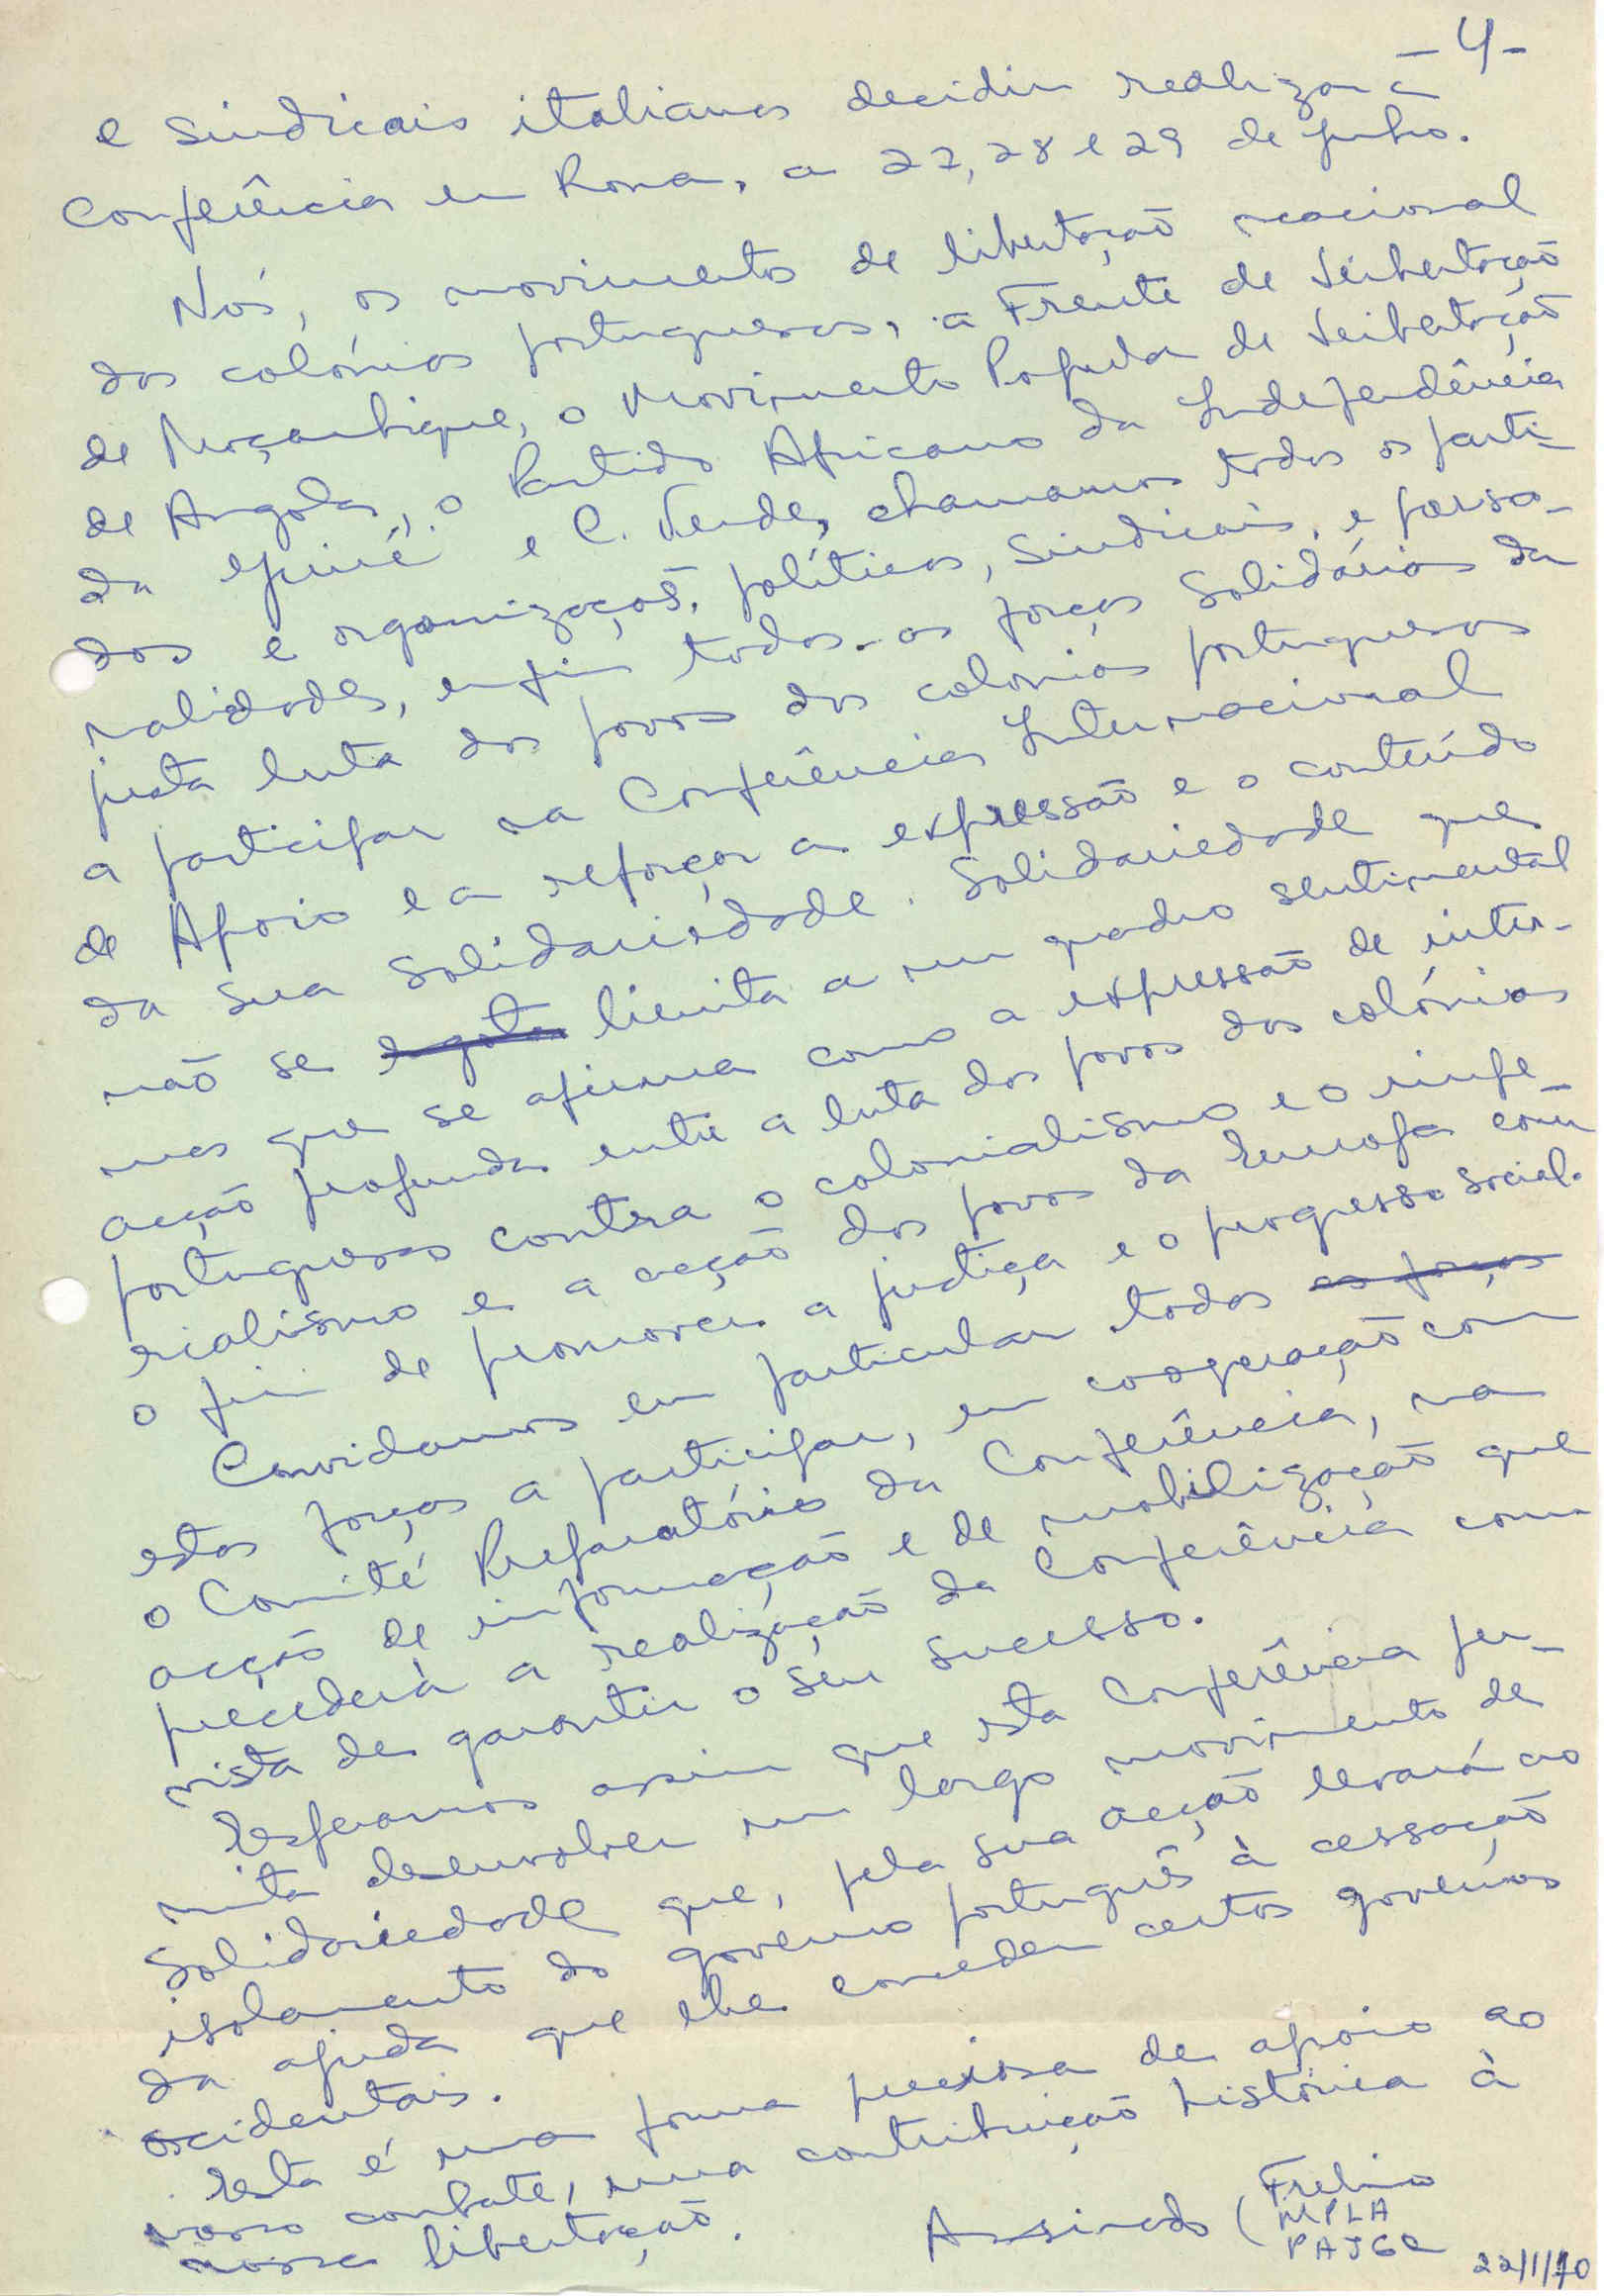 - 4 -
e sindicais italianas decidiu realizar a
Conferência em Roma, a 27, 28 e 29 de Junho.
Nós, os movimentos de libertação nacional
das colónias portuguesas, a Frente de Libertação
de Moçambique, o Movimento Popular de Libertação
de Angola, o Partido Africano da Independência
da Guiné e C. Verde, chamamos todos os parti-
dos e organizações, políticas, sindicais, e perso-
nalidades, enfim todas as forças solidárias da
justa luta dos povos das colonias portuguesas
a participar na Conferência Internacional
de Apoio e a reforçar a expressão e o conteúdo
da sua solidariedade. Solidariedade que
não se esgota limita a um quadro sentimental
mas que se afirma como a expressão de inter-
acção profunda entre a luta dos povos das colónias
portuguesas contra o colonialismo e o impe-
rialismo e a acção dos povos da Europa com
o fim de promover a justiça e o progresso social.
Convidamos em particular todas as forças
estas forças a participar, em cooperação com
o Comité Preparatório da Conferência, na
acção de informação e de mobilização que
precederá a realização da Conferência com
vista de garantir o seu sucesso.
Esperamos assim que esta Conferência per-
mita desenvolver um largo movimento de
Solidariedade que, pela sua acção levará ao
isolamento do governo português à cessação
da ajuda que lhe concedem certos governos
ocidentais.
Esta é uma forma preciosa de apoio ao
nosso combate, uma contribuição histórica à
nossa libertação.
Assinado (Frelimo
MPLA
PAIGC
22/1/70